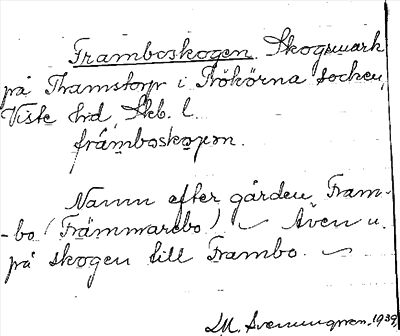 Framboskogen. Skogsmark
på Thamstorp i Rökörna socken,
Viste hrd, Skb. l.
fråmboskogen.
Namn efter gården Fram-
-bo (Främmarebo) ~ Även u.
på skogen till Frambo. ~
1939